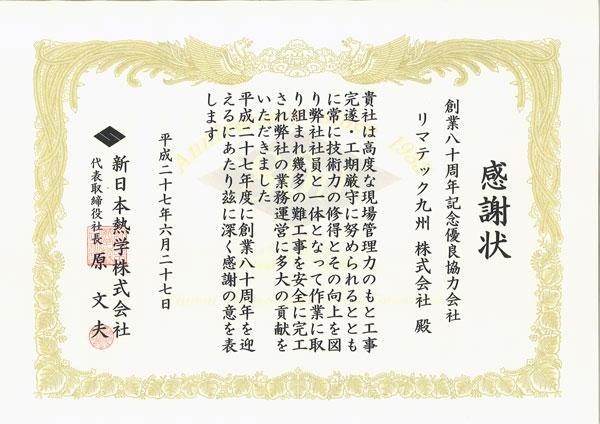 感謝状
創業八十周年記念優良協力会社
リマテック九州 株式会社 殿
貴社は高度な現場管理力のもと工事
完遂・工期厳守に努められるととも
に常に技術力の修得とその向上を図
り弊社社員と一体となって作業に取
り組まれ幾多の難工事を安全に完工
され弊社の業務運営に多大の貢献を
いただきました
平成二十七年度に創業八十周年を迎
えるにあたり茲に深く感謝の意を表
します
平成二十七年六月二十七日
新日本熱学株式会社
代表取締役社長 原 文夫